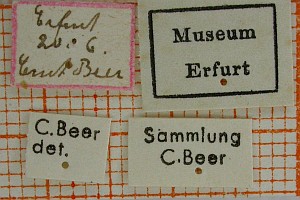 Erfurt
20. 6.
Ernst Beer
Museum
Erfurt
C.Beer
det.
Sammlung
C.Beer